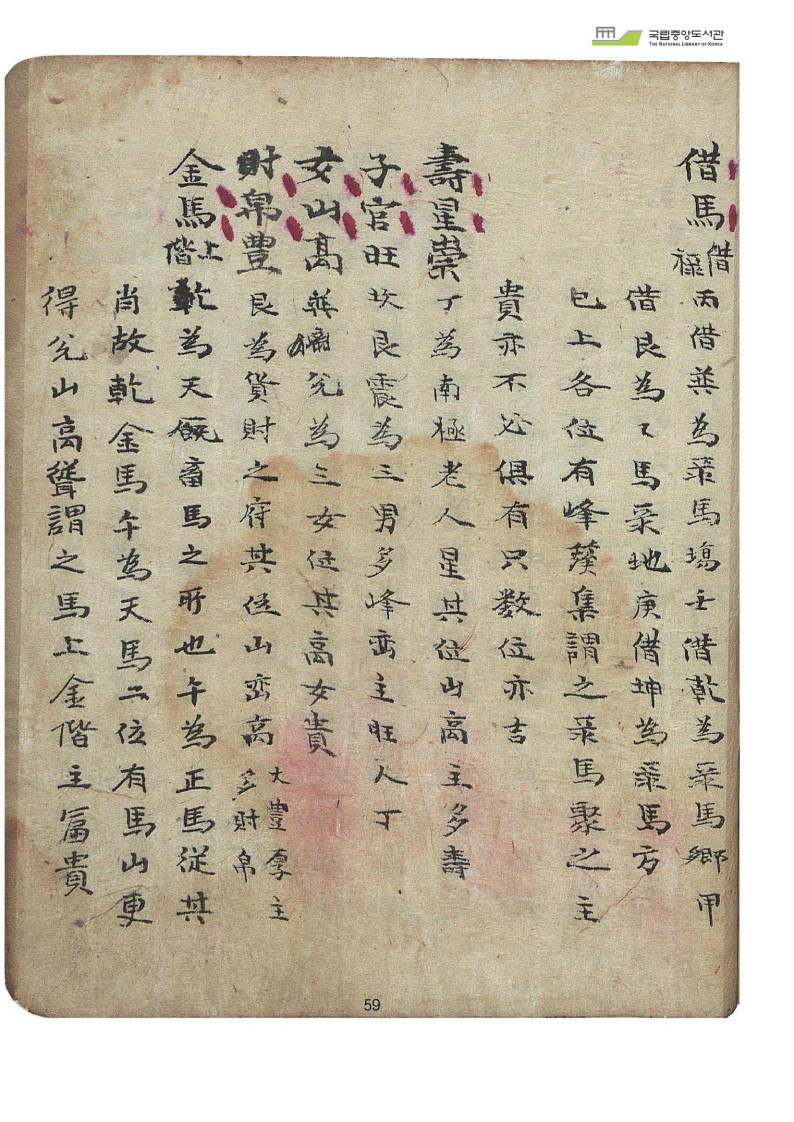 국립중앙도서관
THE NATIONAL LIBRARY OF KOREA
借馬借祿丙借巽為祿馬塲壬借乾為祿馬鄉甲
借艮為〻馬祿地庚借坤為祿馬方
已上各位有峰攅集謂之祿馬聚之主
貴亦不必俱有只数位亦吉
壽星崇丁為南極老人星其位山高主多壽
子官旺坎艮震為三男多峰巒主旺人丁
女山高巽離兊為三女位其高女貴
財帛豊艮為貨財之府其位山巒高大豊厚主多財帛
金馬上偕乾為天厩畜馬之所也午為正馬從其
肖故乾金馬午為天馬二位有馬山更
得兊山高聳謂之馬上金偕主富貴
59